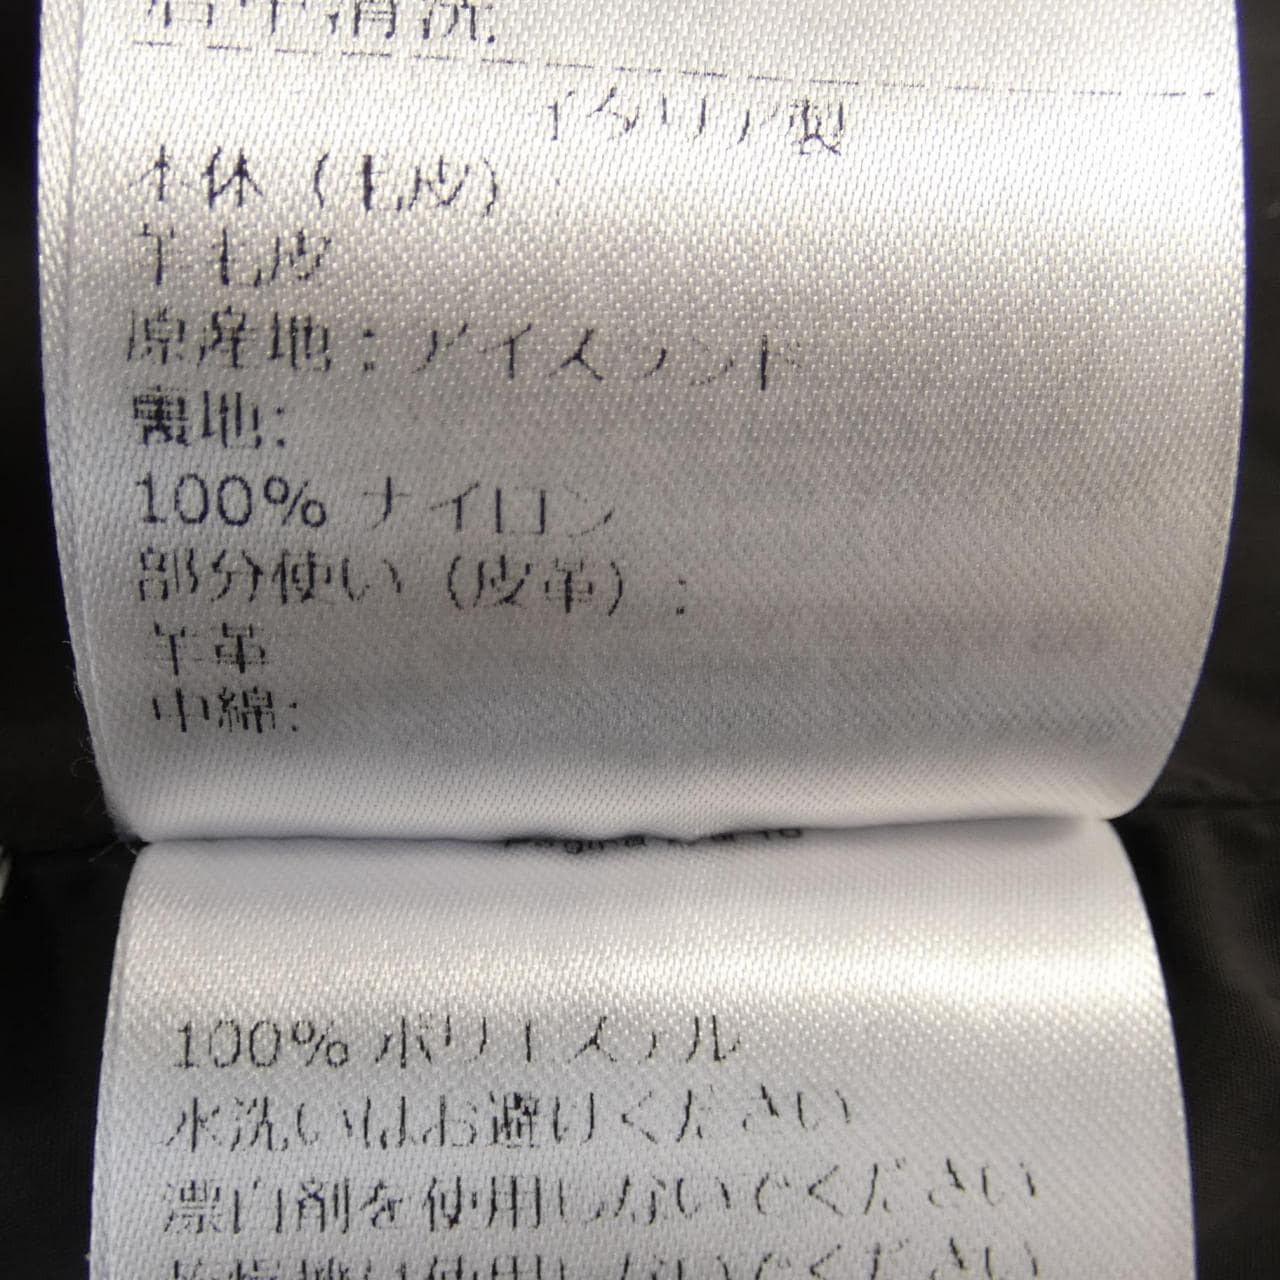 清洗.
イタリア製
本体(毛皮)
羊毛皮
原産地:アイスランド
裏地:
100% ナイロン
部分使い(皮革):
羊革
中綿:
100% ポリエステル
水洗いはお避けください
漂白剤を使用しないでください
使用しないでください